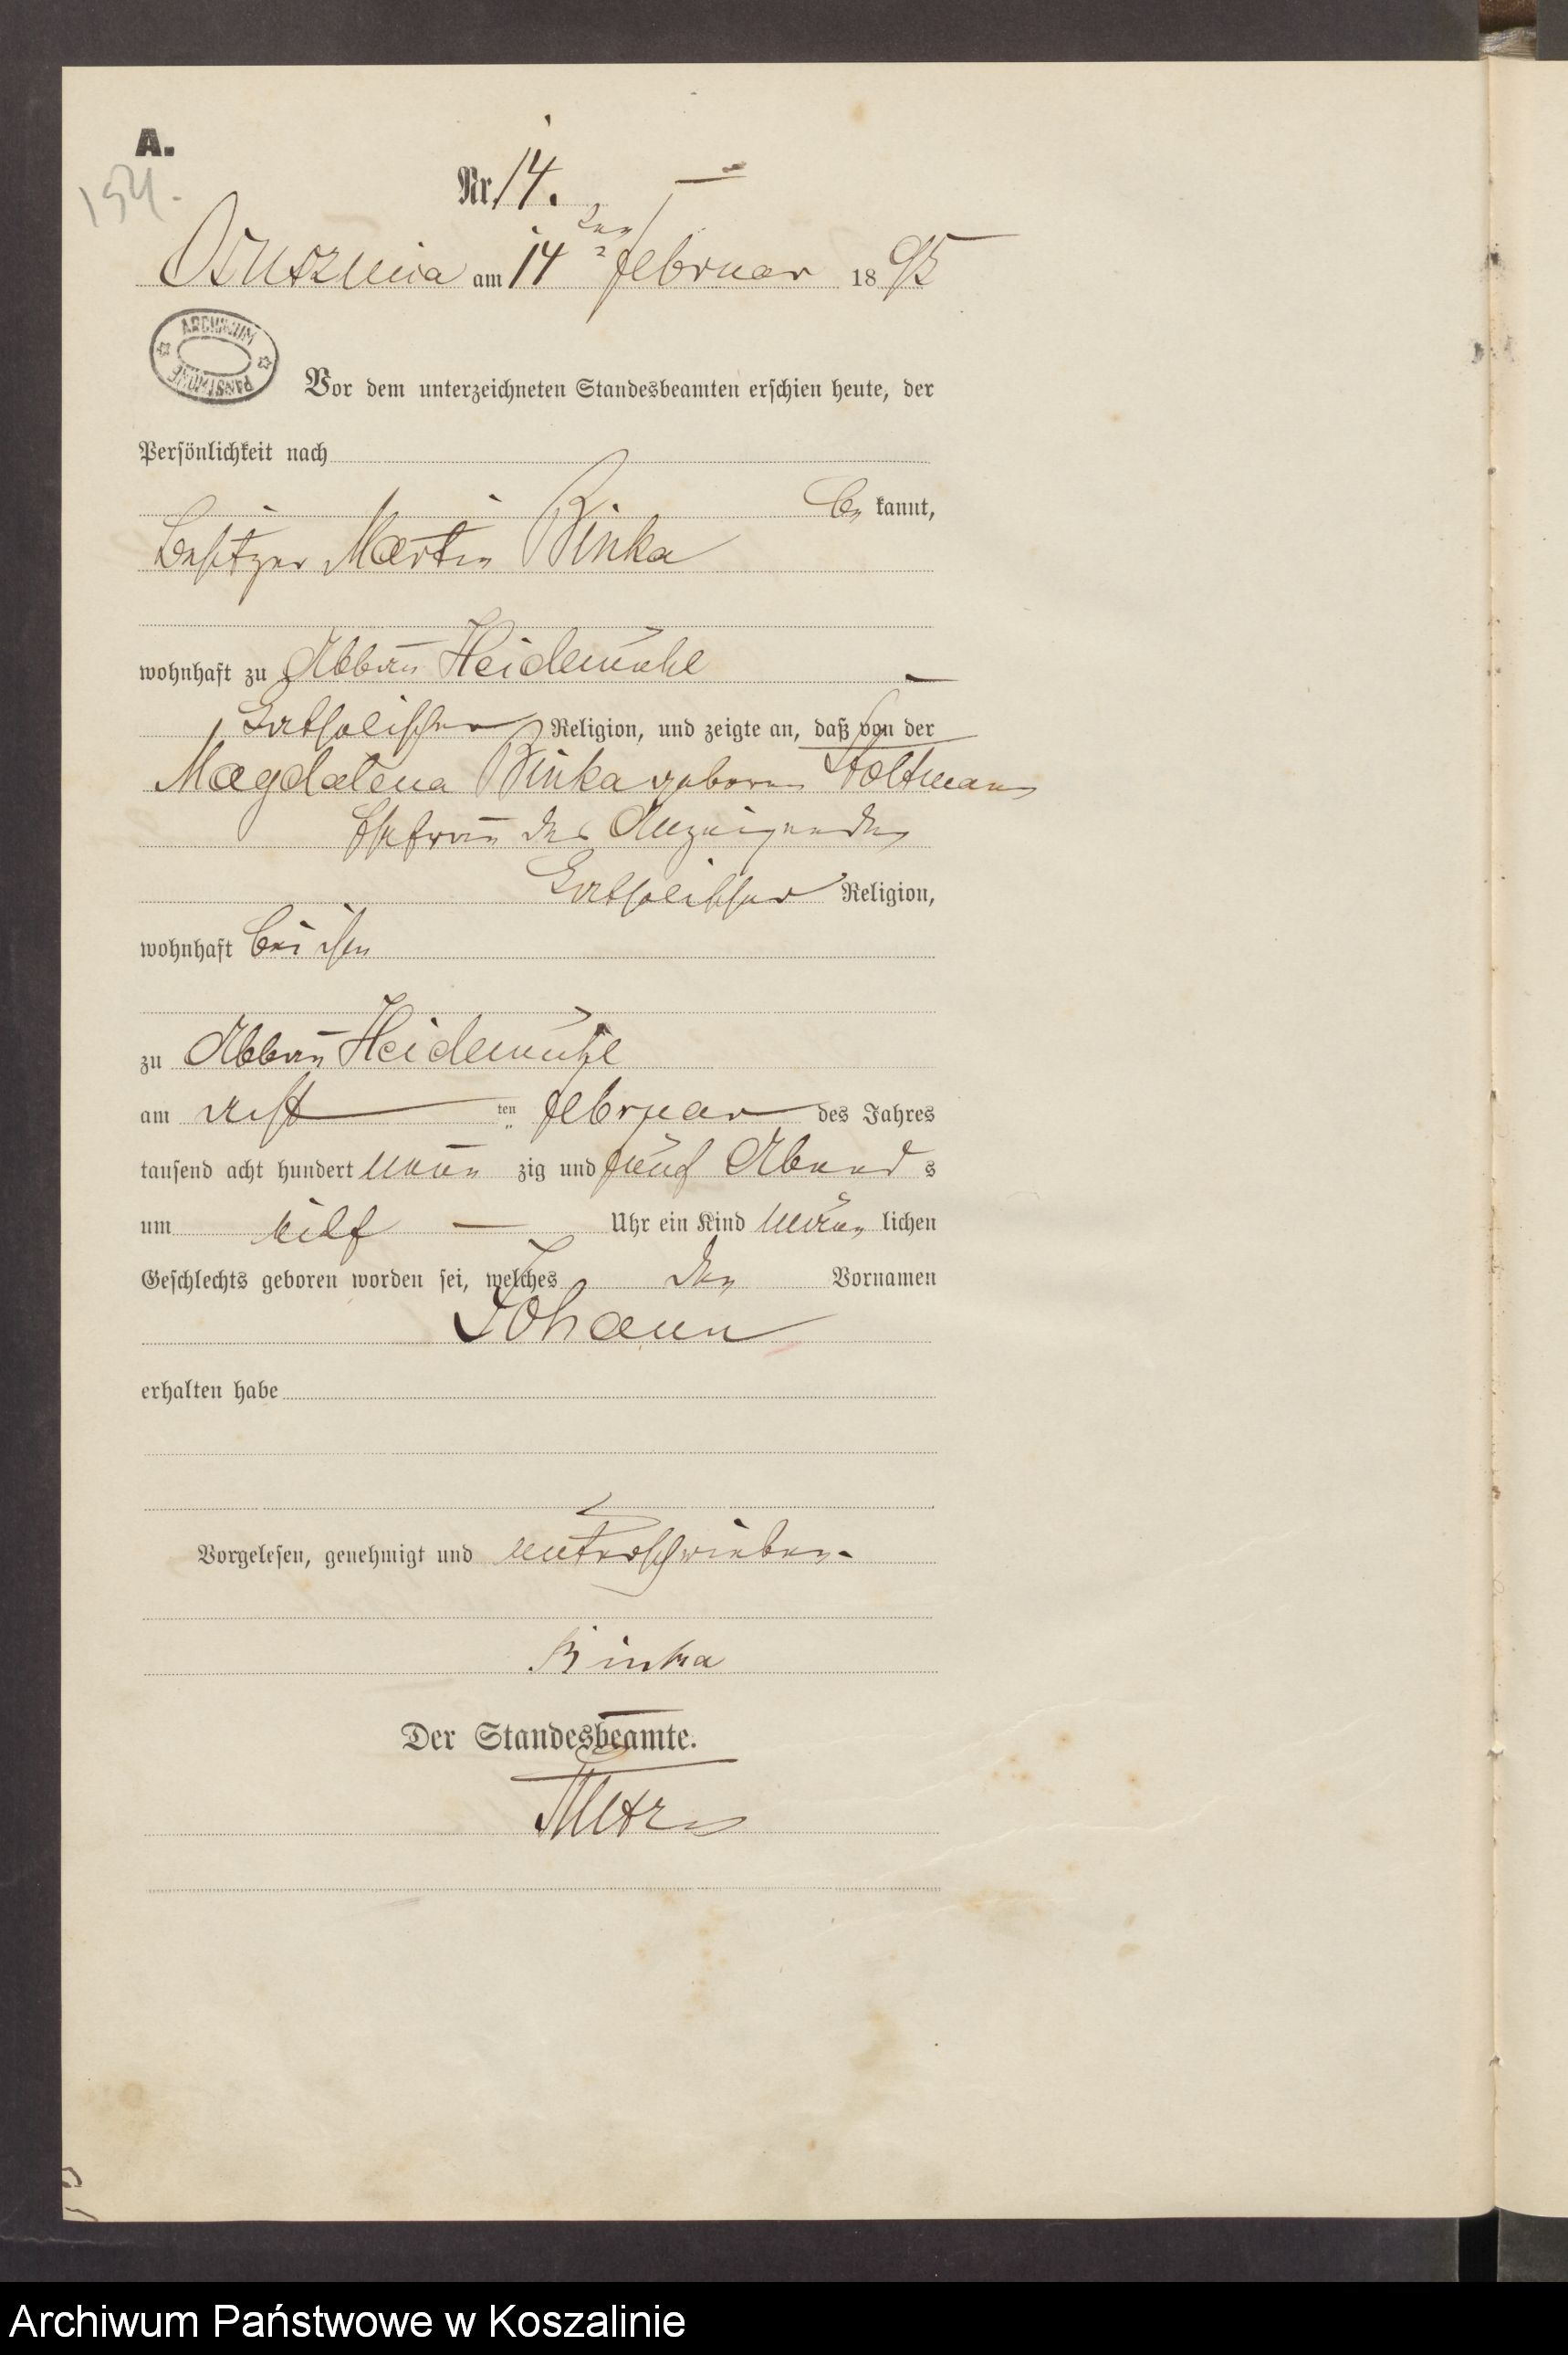 A.
154.
Nr. 14.
Osusznica am 14 ten Februar 1895
ARCHIWUM PAŃSTWOWE
Vor dem unterzeichneten Standesbeamten erschien heute, der
Persönlichkeit nach
be kannt,
Besitzer Martin Binka
wohnhaft zu Abbau Heidemühl
katholischer Religion, und zeigte an, daß von der
Magdalena Binka geboren Stoltmann
Ehefrau des Anzeigenden
katholischer Religion,
wohnhaft bei ihm
zu Abbau Heidemühl
am acht ten Februar des Jahres
tausend acht hundert neun zig und fünf Abend s
um eilf Uhr ein Kind männ lichen
Geschlechts geboren worden sei, welches den Vornamen
Johann
erhalten habe
Vorgelesen, genehmigt und unterschrieben.
Binka
Der Standesbeamte.
Archiwum Państwowe w Koszalinie